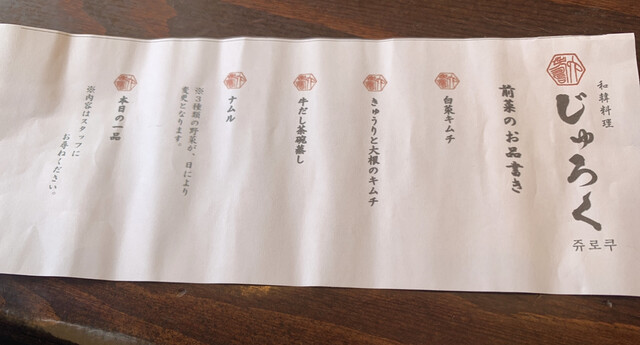 和韓料理
じゅろく
쥬로쿠
前菜のお品書き
白菜キムチ
きゅうりと大根のキムチ
牛だし茶碗蒸し
ナムル
※3種類の野菜が、日により
変更となります。
本日の一品
※内容はスタッフに
お尋ねください。